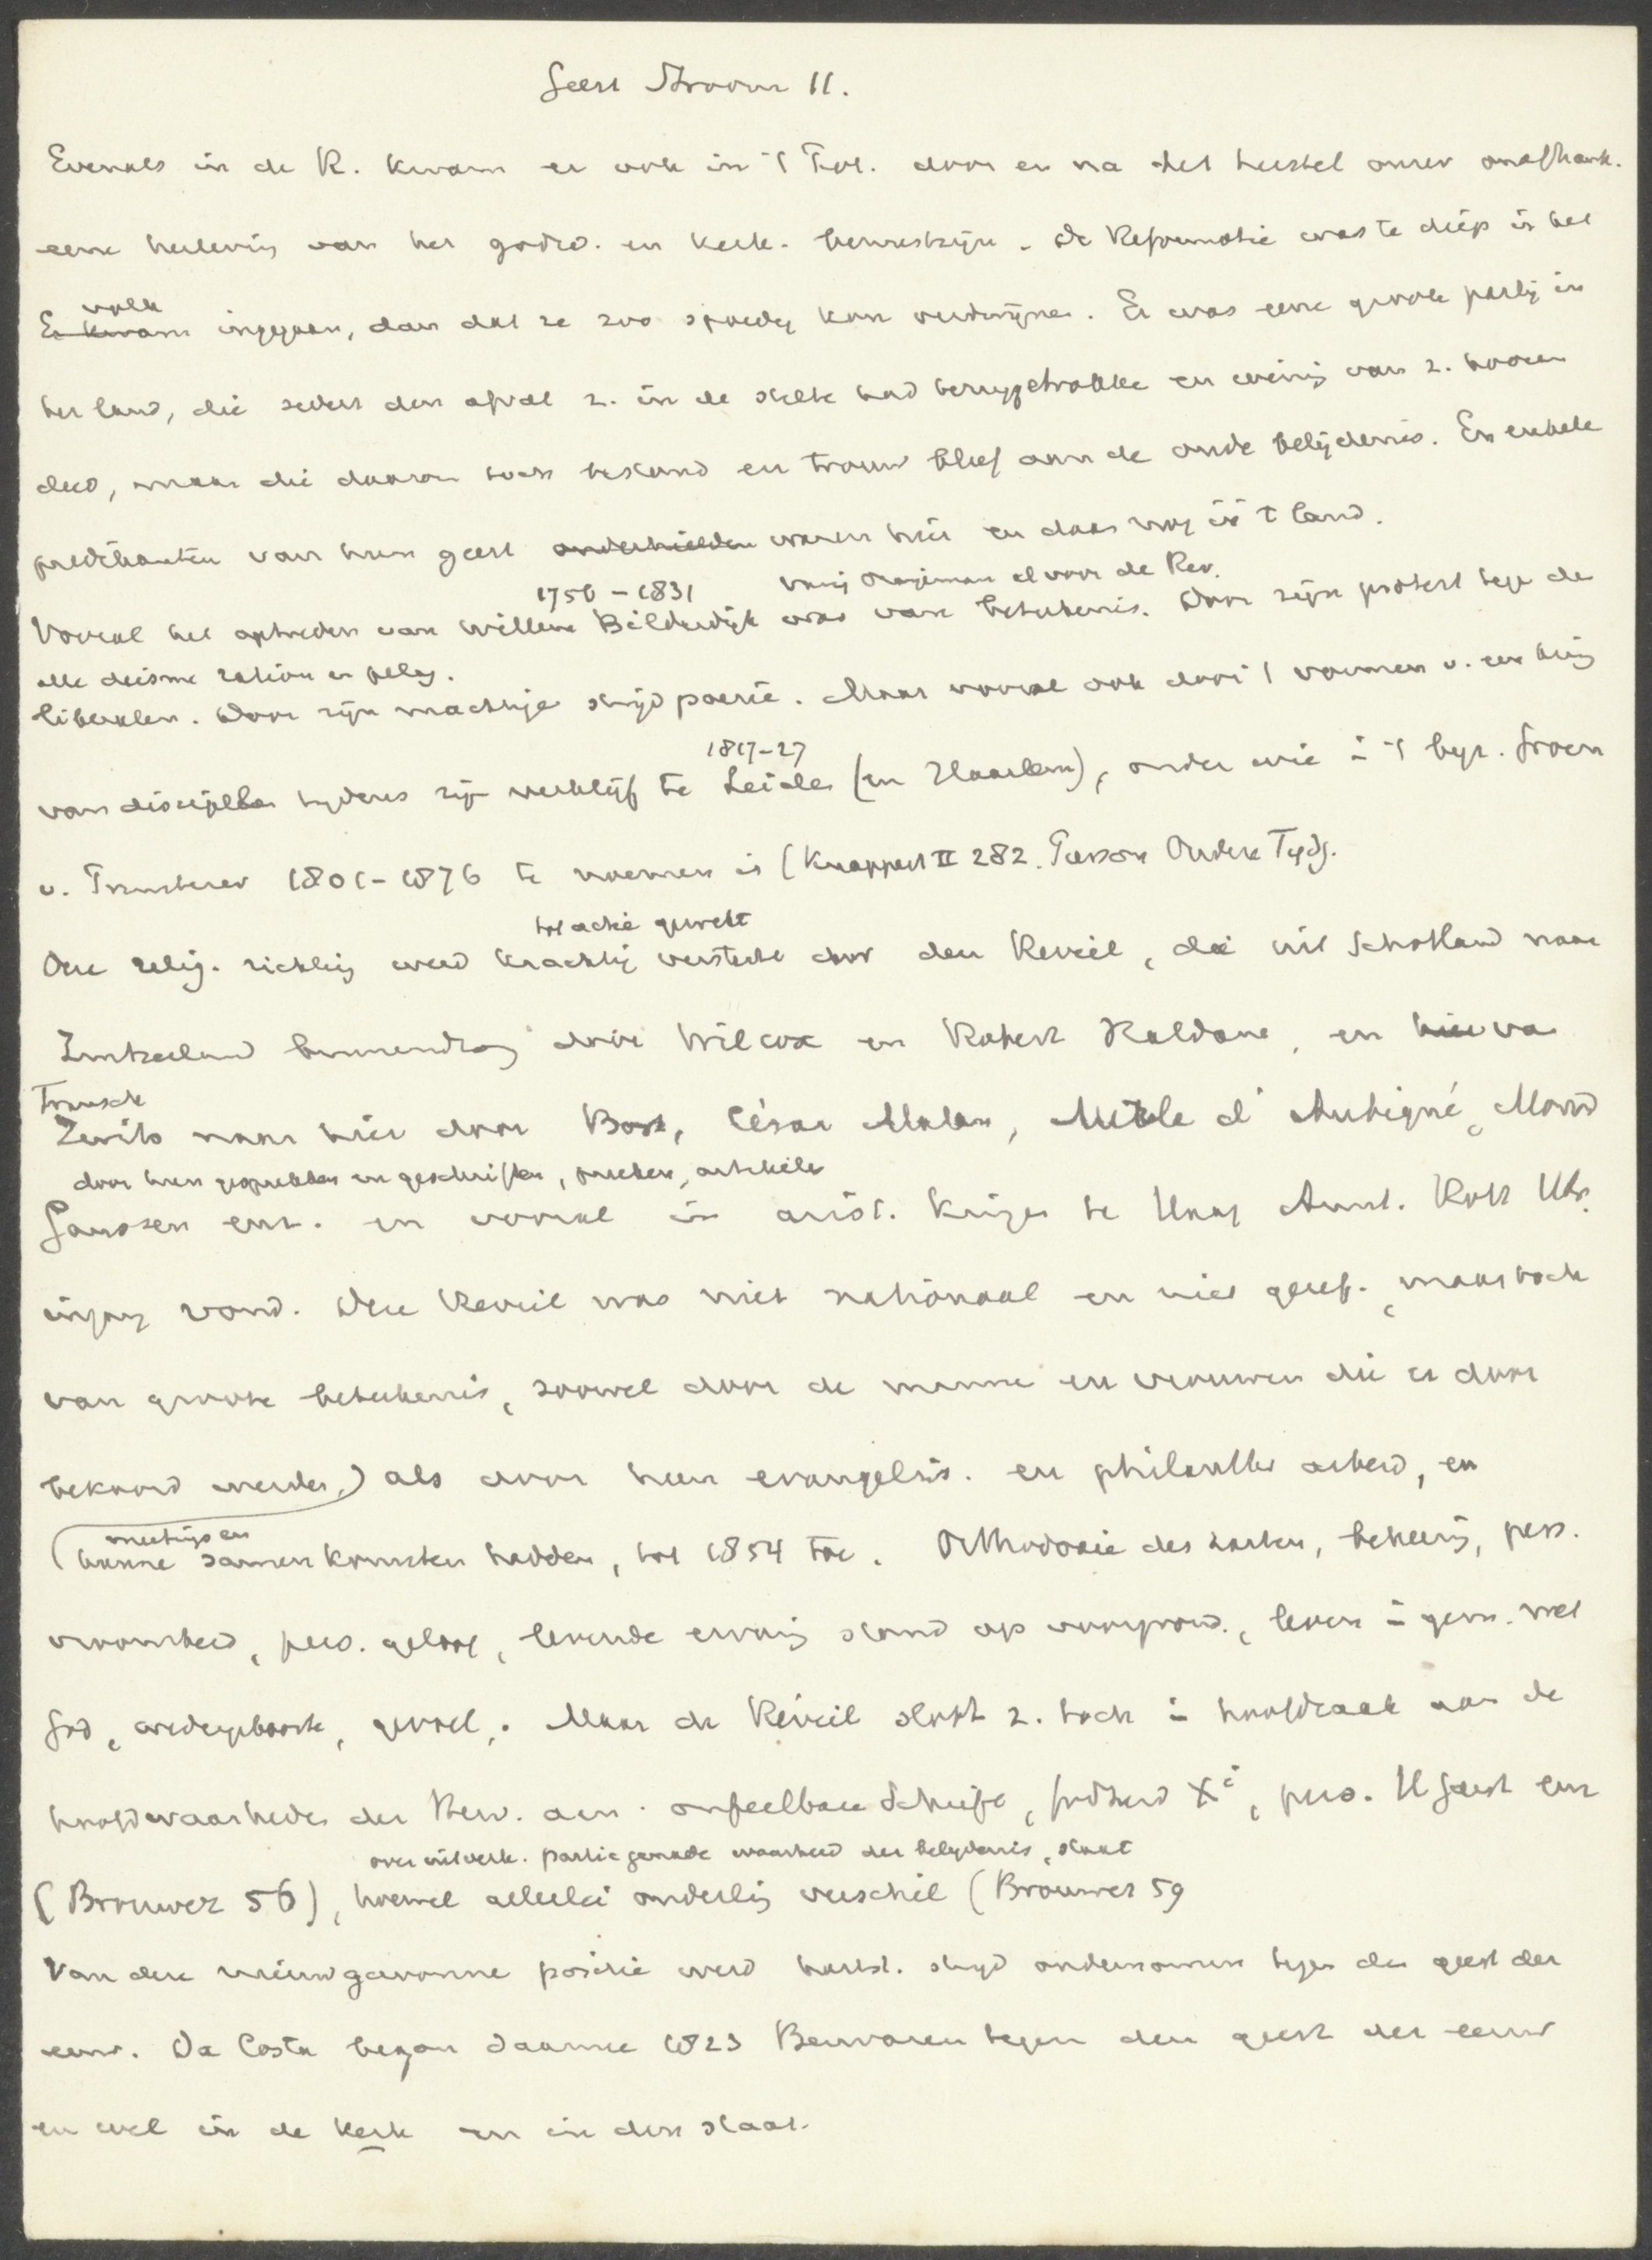 Geest Stroom II.
Evenals in de R. kwam er ook in 't Prot. door en na het herstel onzer onafhank.
eene herleving van het godsd. en kerk. bewustzijn. De Reformatie was te diep in het
volk
Er kwam ingegaan, dan dat ze zoo spoedig kon verdwijnen. Er was eene groote partij in
het land, die sedert den afval z. in de stilte had teruggetrokke en weinig van z. hooren
deed, maar die daarom toch bestond en trouw bleef aan de oude belijdenis. En enkele
predikanten van hun geest onderhielden waren hier en daar nog in 't land.
1756 - 1831 vurig Oranjeman al voor de Rev.
Vooral het optreden van Willem Bilderdijk was van beteekenis. Door zijn protest tege de
alle deisme ration en pelag.
liberalen. Door zijn machtige strijdpoezie. Maar vooral ook door 't vormen v. een kring
1817-27
van discipelen tijdens zijn verblijf te Leiden (en Haarlem), onder wie in 't bijz. Groen
v. Prinsterer 1801-1876 te noemen is (Knappert II 282. Pierson Oudere Tijdg.
tot actie gewekt
Deze relig. richting werd krachtig versterkt door den Reveil, die uit Schotland naar
Zwitserland binnendrong door Wilcox en Robert Haldane, en hier va
Fransch
Zwits naar hier door Bost, César Malan, Merle d'Aubigné, Monod
door hun gesprekken en geschriften, preeken, artikelen
Gaussen enz. en vooral in arist. kringen te Haag Amst. Rott Utr.
ingang vond. Deze Reveil was niet nationaal en niet geref., maar toch
van groote beteekenis, zoowel door de manne en vrouwen die er door
bekoord werden,) als door hun evangelis. en philanthr arbeid, en
meetings en
(hunne samenkomsten hadden, tot 1854 toe. Orthodoxie des harten, bekeering, pers.
vroomheid, pers. geloof, levende ervaring stond op voorgrond., leven in gem. met
God, wedergeboorte, gevoel,. Maar de Réveil sloot z. toch in hoofdzaak aan de
hoofdwaarheden der Herv. aan. onfeilbare Schrift, godheid Xi, pers. H Geest enz
over uitverk. particgenade waarheid der belijdenis, staat
(Brouwer 56), hoewel allerlei onderling verschil (Brouwer 59
Van deze nieuwgewonne positie werd hartst. strijd ondernomen tegen den geest der
eeuw. Da Costa begon daarmee 1823 Bezwaren tegen den geest der eeuw
en wel in de kerk en in den staat.